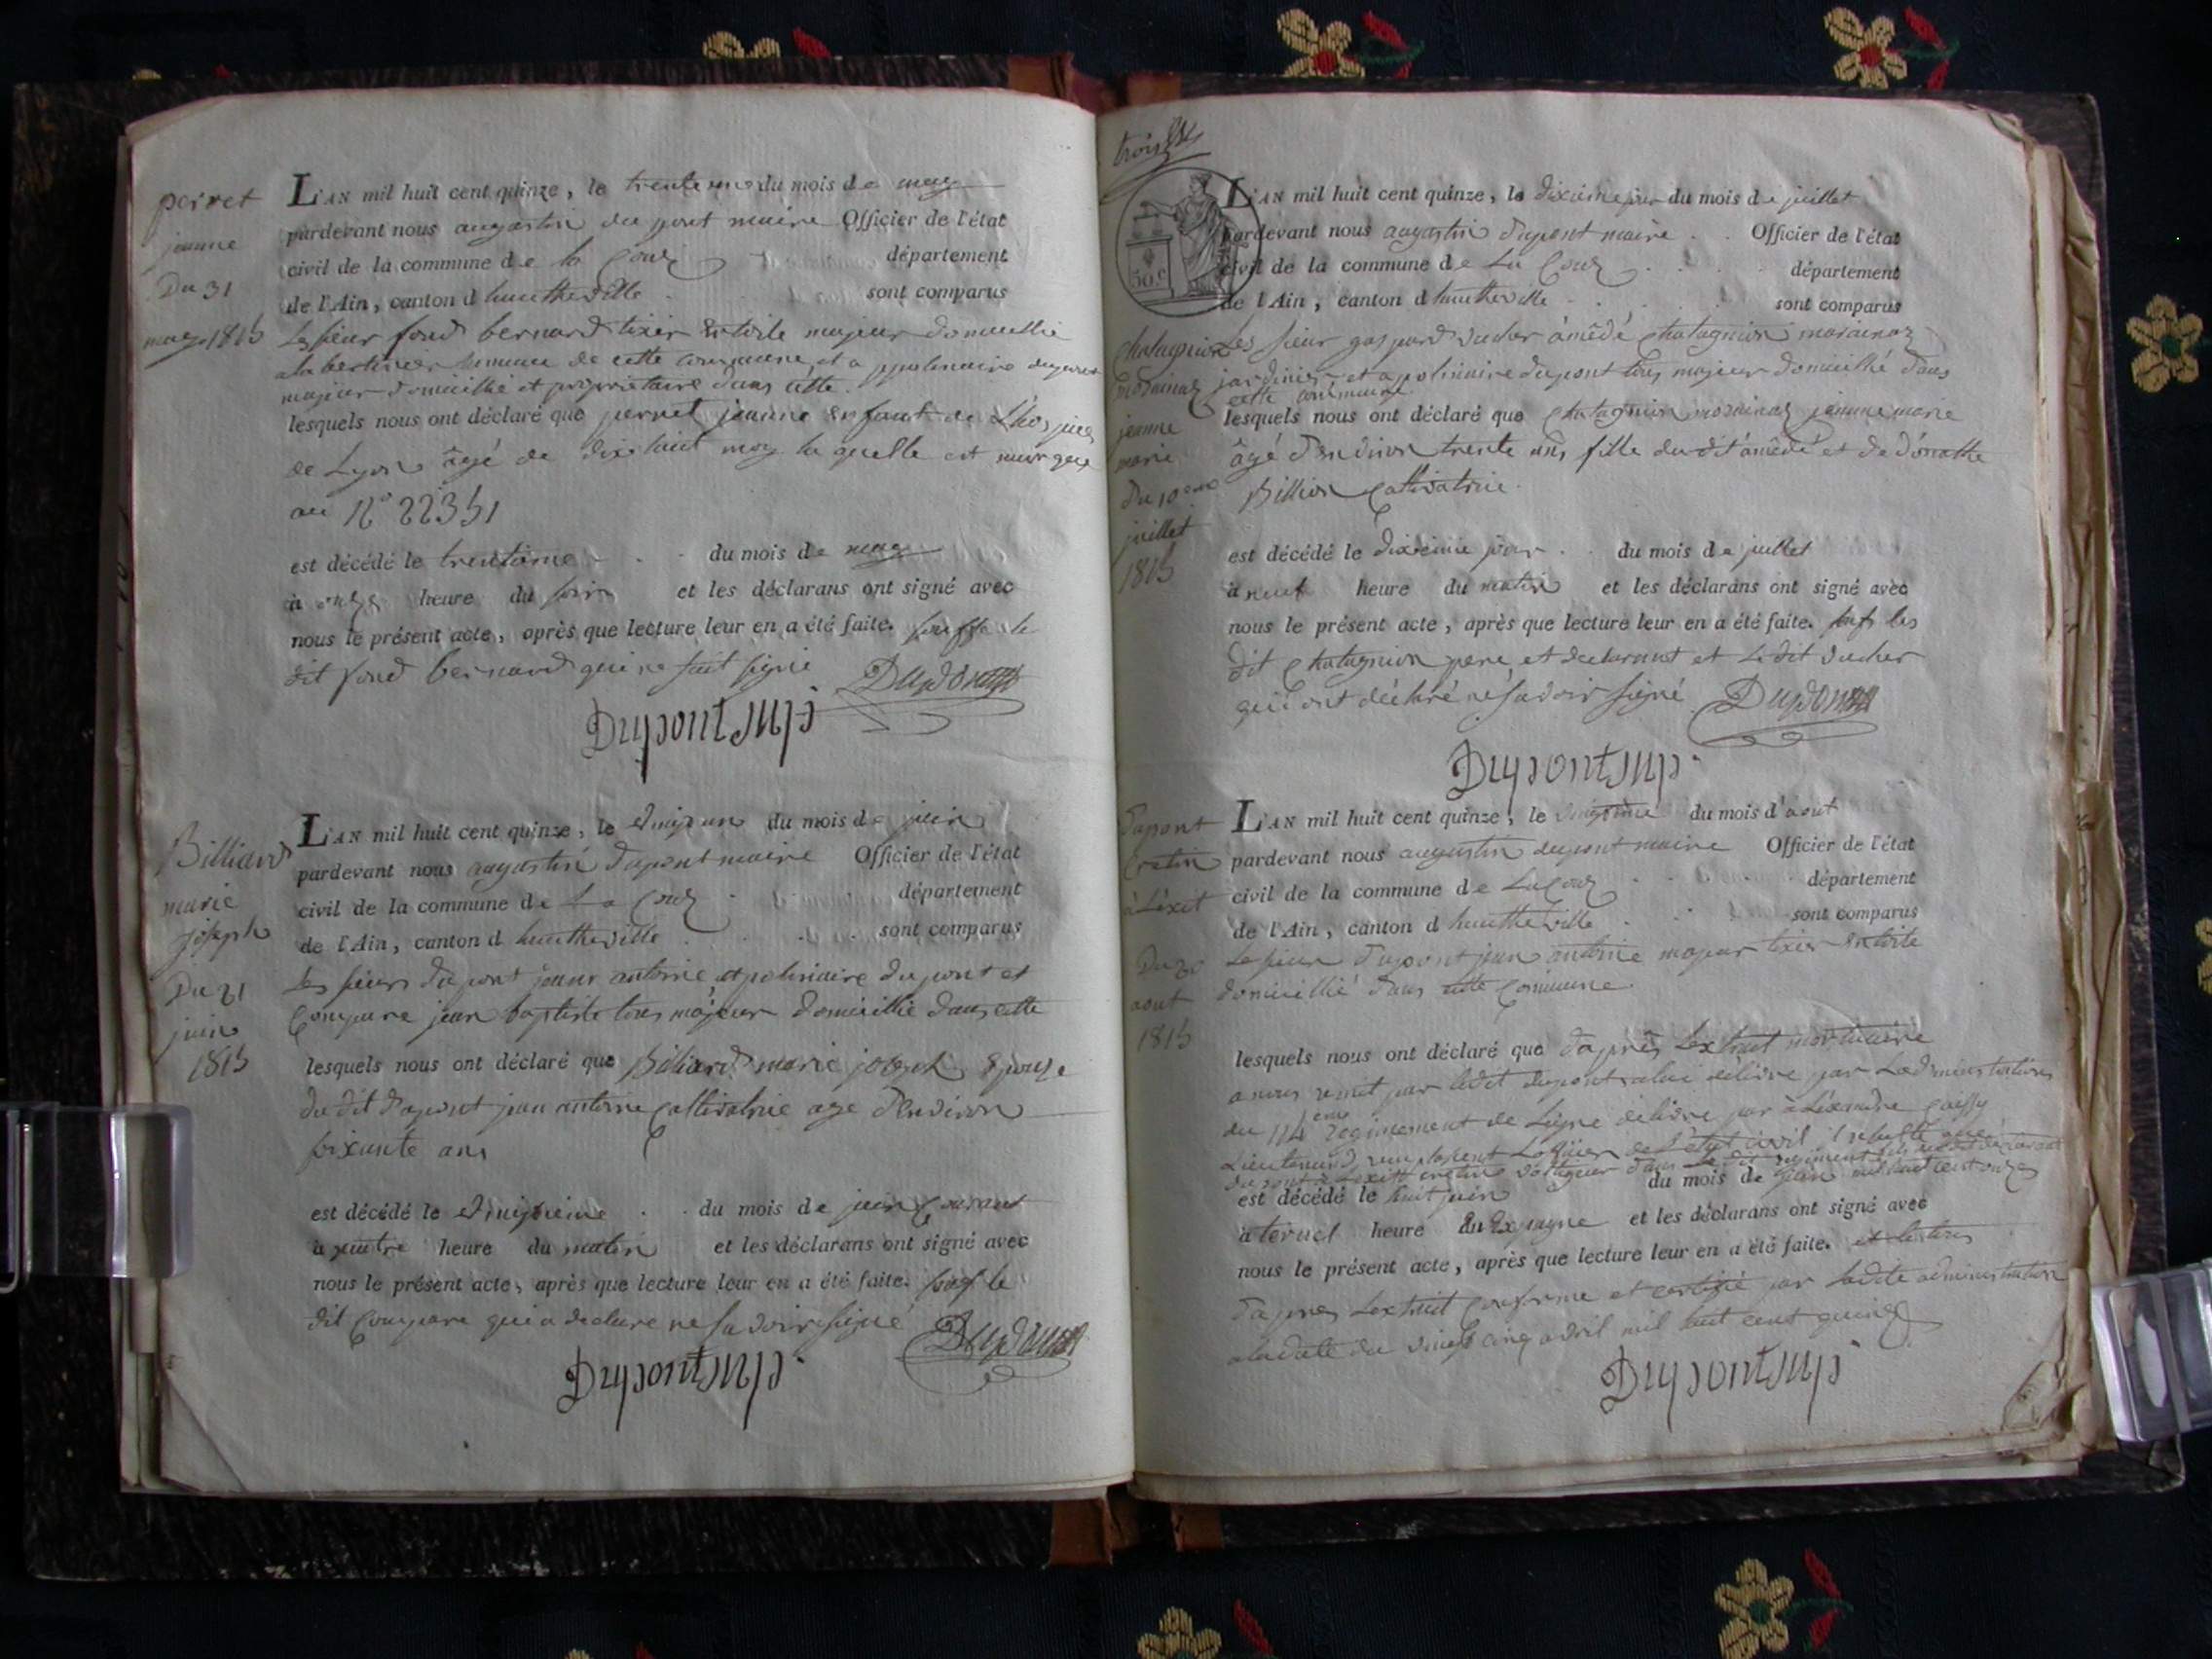 perret
jeanne
Du 31
may 1815
L'AN mil huit cent quinze, le trente un du mois de may
pardevant nous augustin du pont maire Officier de l'état
civil de la commune de la Couz département
de l'Ain, canton d'hautheville sont comparus
Les sieur fond bernard tixier en toile majeur domicillié
a la hameau de cette commune, et appolinaire dupont
majeur domicillié et propriétaire dans cette
lesquels nous ont déclaré que perret jeanne enfant de L'hospice
de Lyon âgé de dix huit moy la quelle est marquée
au N° 22351
est décédé le trentième du mois de may
à onze heure du soir et les déclarans ont signé avec
nous le présent acte, après que lecture leur en a été faite. sauf le
dit fond bernard qui ne sait signé Dupont
Dupont
Billiard
marie
joseph
Du 21
juin
1815
L'AN mil huit cent quinze, le vingt un du mois de juin
pardevant nous augustin dupont maire Officier de l'état
civil de la commune de La Couz département
de l'Ain, canton d'hautheville sont comparus
Les sieurs dupont jean antoine, appolinaire dupont et
Compare jean baptiste tous majeur domicillié dans cette
lesquels nous ont déclaré que Billiard marie joseph Epouze
du dit dupont jean antoine Cultivatrice age d'environ
soixante ans
est décédé le vingtième du mois de juin Courant
à quatre heure du matin et les déclarans ont signé avec
nous le présent acte, après que lecture leur en a été faite. sauf le
dit Compare qui a declaré ne savoir signé Dupont
Dupont
trois
30.c
Chatagnion
morainaz
jeanne
marie
Du 10eme
juillet
1815
L'AN mil huit cent quinze, le dixième jour du mois de juillet
pardevant nous augustin dupont maire Officier de l'état
civil de la commune de La Couz département
de l'Ain, canton d'hautheville sont comparus
Les sieur gaspard sucher amédé Chatagnion morainaz
jardinier, et apolinaire dupont tous majeur domicillié dans
cette commune
lesquels nous ont déclaré que Chatagnion morainaz jeanne marie
âgé d'environ trente ans fille du dit amédé et de
Billion Cultivatrice.
est décédé le dixième jour du mois de juillet
à neuf heure du matin et les déclarans ont signé avec
nous le présent acte, après que lecture leur en a été faite. sauf les
dit Chatagnion pere et declarant et Le dit sucher
qui ont déclaré ne savoir signé Dupont
Dupont
Dupont
cretin
aléxit
Du 20
aout
1815
L'AN mil huit cent quinze, le vingtième du mois d'aout
pardevant nous augustin dupont maire Officier de l'état
civil de la commune de La Couz département
de l'Ain, canton d'hautheville sont comparus
Le sieur dupont jean antoine majeur tixier en toile
domicillié dans cette Commune
lesquels nous ont déclaré que d'après L'extrait mortuaire
a nous remit par ledit dupont a lui délivré par L'administration
du 114eme regimement de Ligne délivré par aléxandre
Lieutenant remplasent L'officier de L'état civil il resulte que
dupont aléxit cretin voltigeur dans le dit regiment
est décédé le huit juin du mois de juin mil huit cent onze
à teruel heure du Espagne et les déclarans ont signé avec
nous le présent acte, après que lecture leur en a été faite.
d'apres L'extrait Conforme et certifié par ladite administration
a la date du vingt cinq avril mil huit cent quinze
Dupont